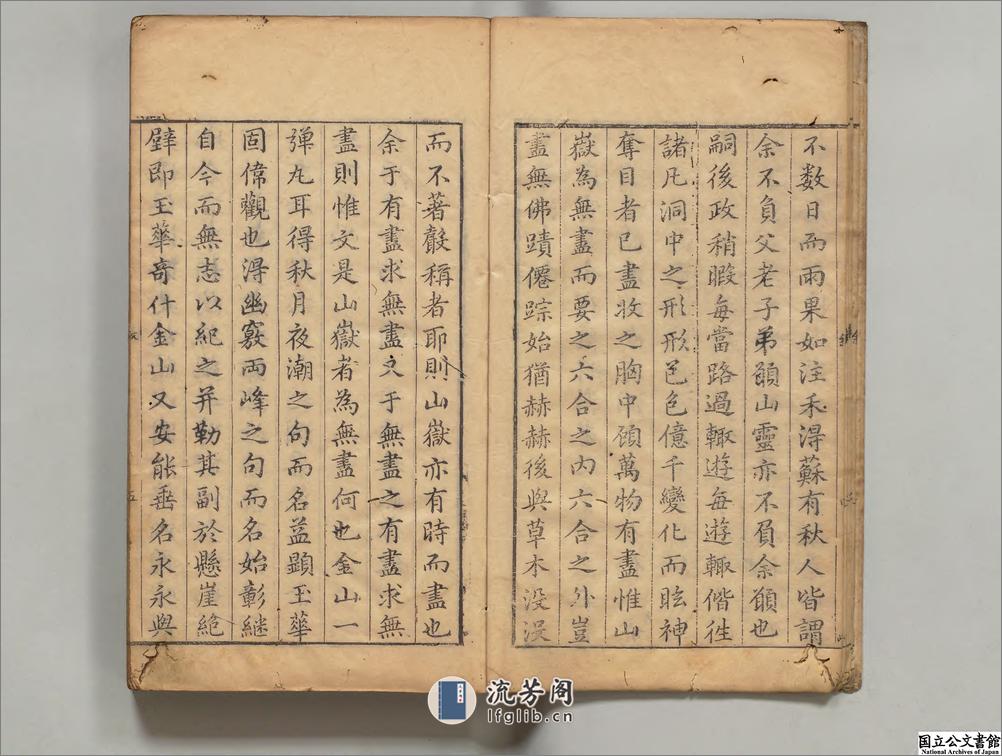 不数日而雨果如注禾得蘇有秋人皆謂
余不負父老子弟願山靈亦不負余願也
嗣後政稍暇每當路過輙遊每遊輙偕徃
諸凡洞中之形形色色億千變化而眩神
奪目者已盡收之胸中顧萬物有盡惟山
嶽為無盡而要之六合之内六合之外豈
盡無佛蹟僊踪始猶赫赫後與草木没没
而不著聲稱者耶則山嶽亦有時而盡也
余于有盡求無盡又于無盡之有盡求無
盡則惟文是山嶽者為無盡何也金山一
弹丸耳得秋月夜潮之句而名益顕玉華
固偉觀也得幽竅両峰之句而名始彰継
自今而無志以紀之并勒其副於懸崖絶
壁即玉華奇什金山又安能垂名永永與
流芳阁
lfglib.cn
国立公文書館
National Archives of Japan